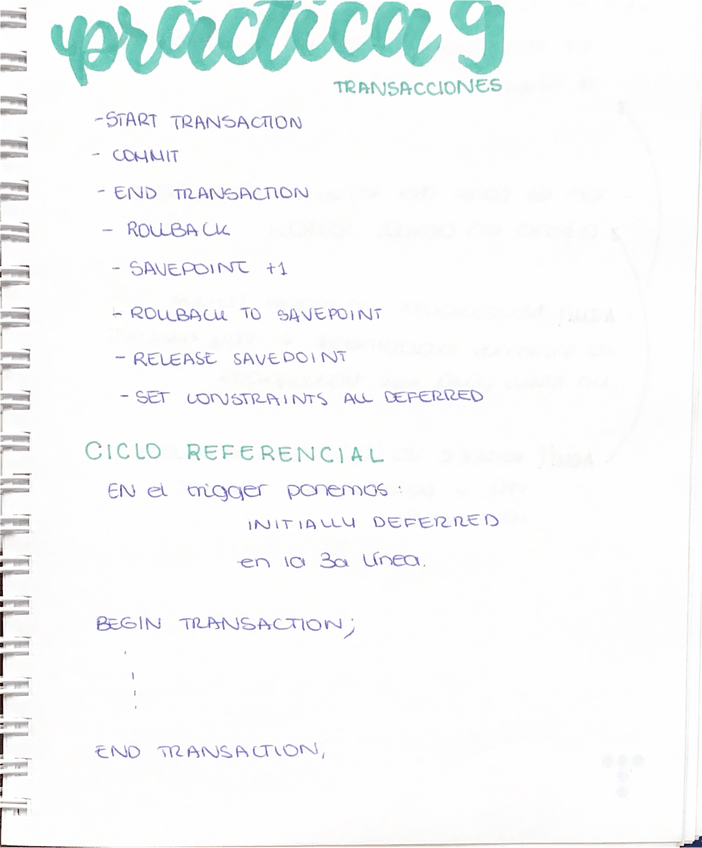 práctica 9
TRANSACCIONES
- START TRANSACTION
- COMMIT
- END TRANSACTION
- ROLLBACK
- SAVEPOINT +1
- ROLLBACK TO SAVEPOINT
- RELEASE SAVEPOINT
- SET CONSTRAINTS ALL DEFERRED
CICLO REFERENCIAL
EN el trigger ponemos:
INITIALLY DEFERRED
en la 3a línea.
BEGIN TRANSACTION;
END TRANSACTION,